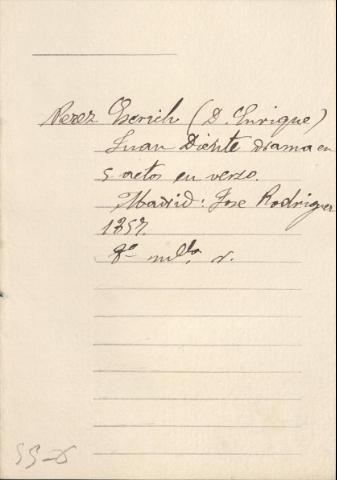 Perez Escrich (D. Enrique)
Juan Diente drama en
5 actos en verso.
Madrid: Jose Rodriguez
1857.
8º mlla. r.
55-6